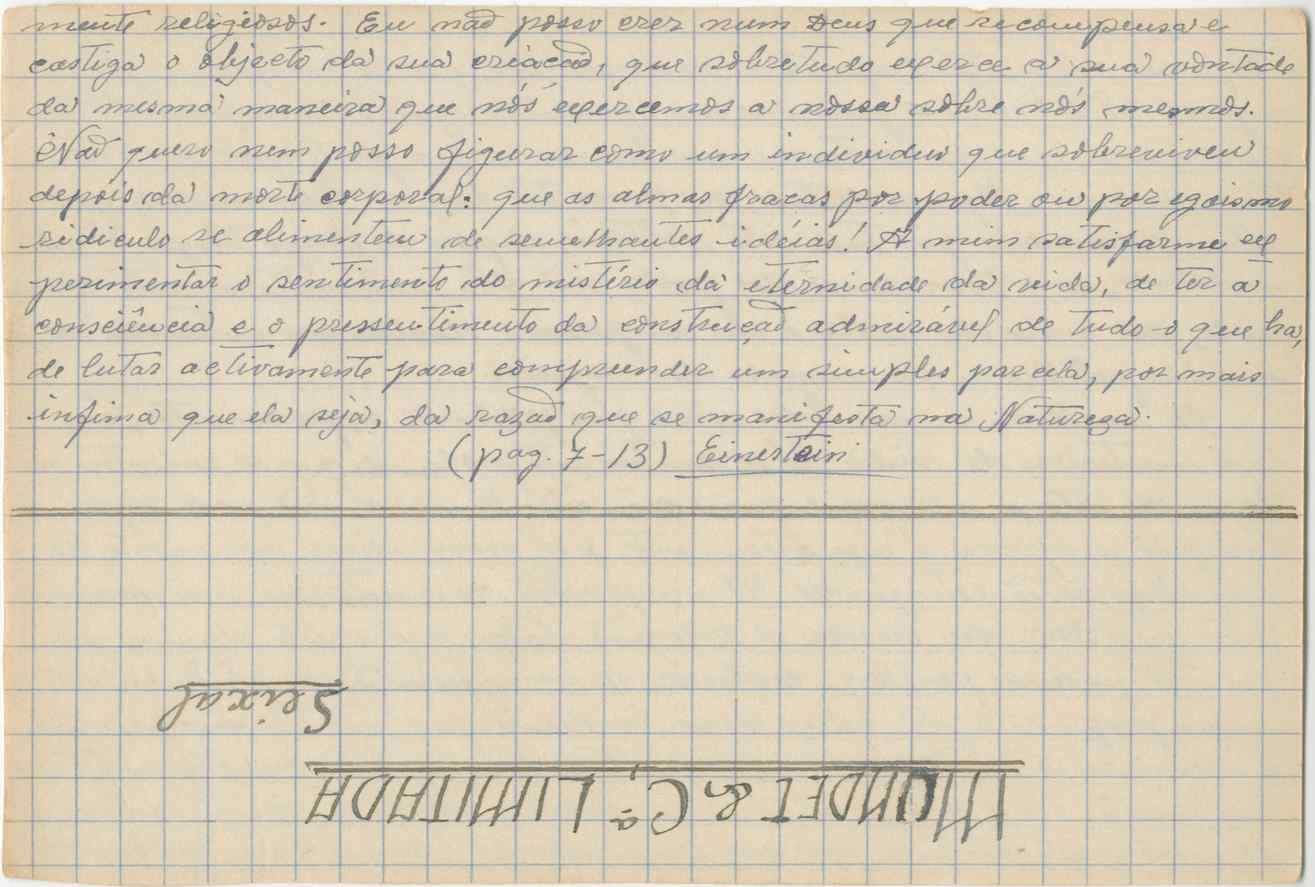 mente religiosos. Eu não posso crer num Deus que recompensa e
castiga o objecto da sua criação, que sobretudo exerce a sua vontade
da mesma maneira que nós exercemos a nossa sobre nós mesmos.
Não quero nem posso figurar como um individuo que sobreviveu
depois da morte corporal: que as almas fracas por poder ou por egoismo
ridiculo se alimentem de semelhantes idéias! A mim satisfarme ex
perimentar o sentimento do mistério da eternidade da vida, de ter a
consciência e o pressentimento da construção admirável de tudo o que ha,
de lutar activamente para compreender um simples parcela, por mais
infima que ela seja, da razão que se manifesta na Natureza.
(pag. 7-13) Einestein
Seixal
MUNDET & Cª, LIMITADA